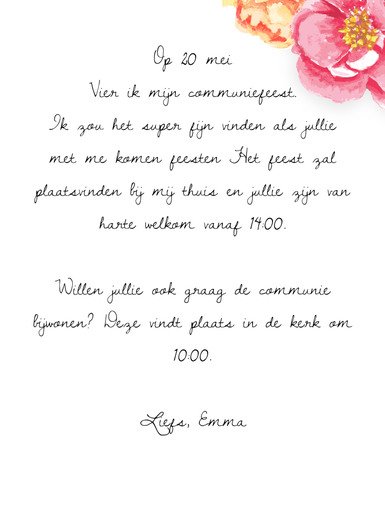 Op 20 mei
Vier ik mijn communiefeest.
Ik zou het super fijn vinden als jullie
met me komen feesten Het feest zal
plaatsvinden bij mij thuis en jullie zijn van
harte welkom vanaf 14:00.
Willen jullie ook graag de communie
bijwonen? Deze vindt plaats in de kerk om
10:00.
Liefs, Emma